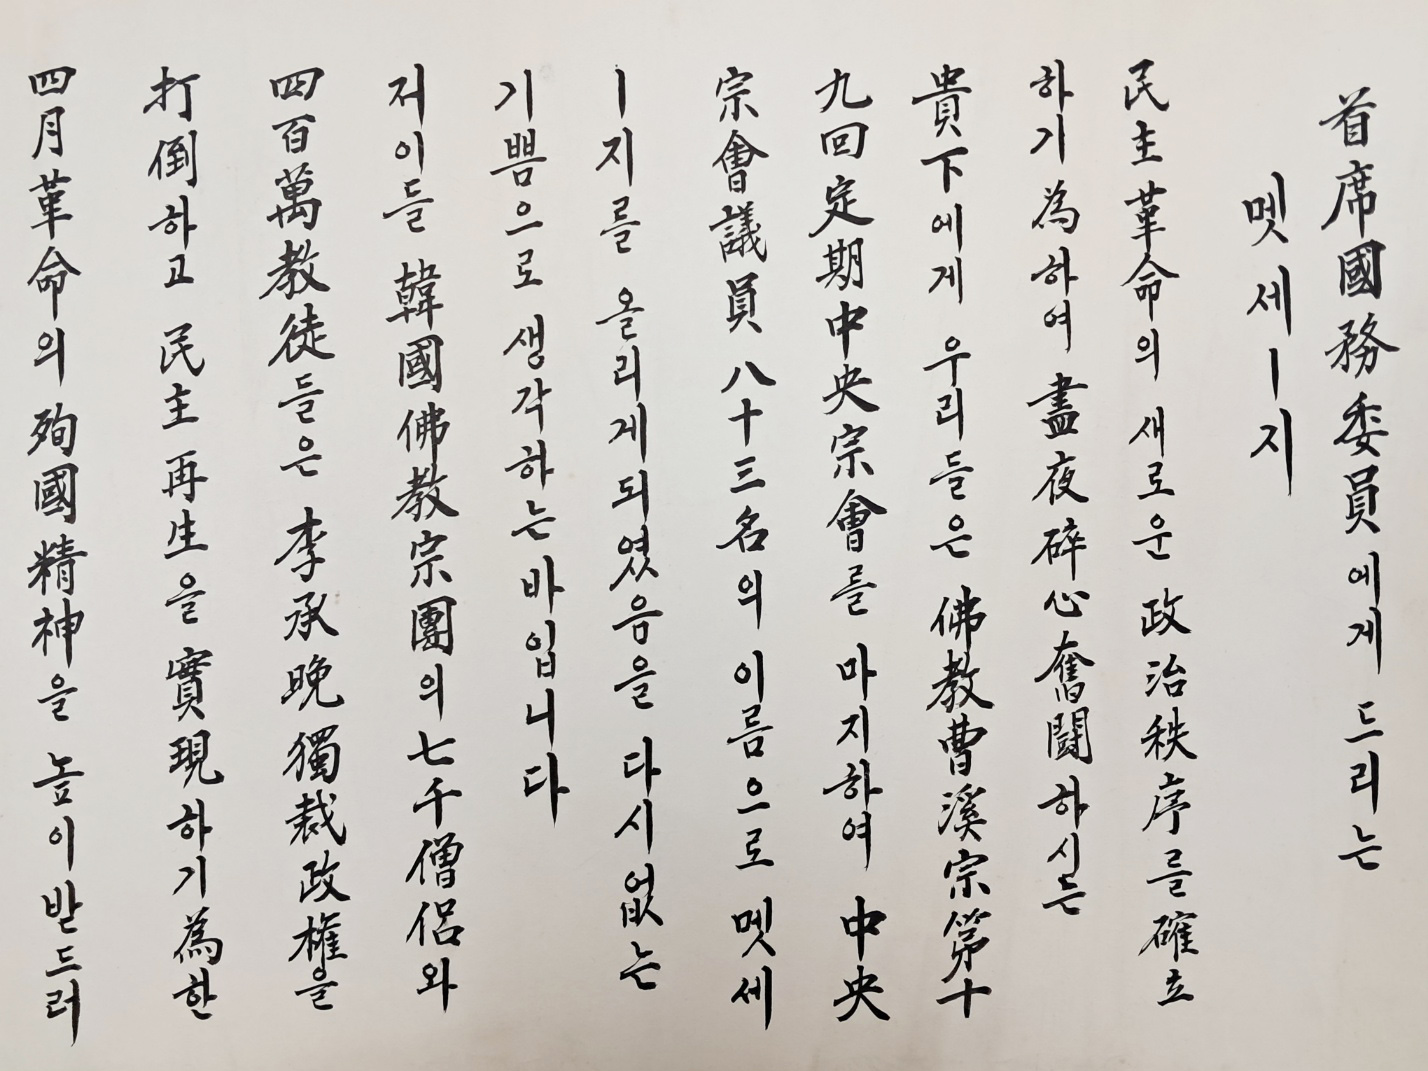 首席國務委員에게 드리는
멧세ㅣ지
民主革命의 새로운 政治秩序를 確立
하기 為하여 晝夜碎心奮鬪하시는
貴下에게 우리들은 佛教曹溪宗第十
九回定期中央宗會를 마지하여 中央
宗會議員 八十三名의 이름으로 멧세
ㅣ지를 올리게되였음을 다시없는
기쁨으로 생각하는바입니다
저이들 韓國佛教宗團의 七千僧侶와
四百萬教徒들은 李承晩獨裁政權을
打倒하고 民主再生을 實現하기為한
四月革命의 殉國精神을 높이받드러